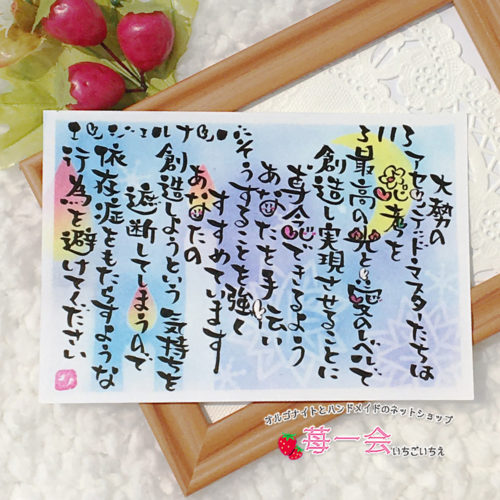 エンジェルナンバー 3113
大勢の
アセンデッドマスターたちは
を
最高の光と愛のレベルで
創造し実現させることに
専念できるよう
あなたを手伝い
そうすることを強く
すすめています
あなたの
創造しようという気持ちを
遮断してしまうので
依存症をもたらすような
行為を避けてください
オルゴナイトとハンドメイドのネットショップ
苺一会いちごいちえ